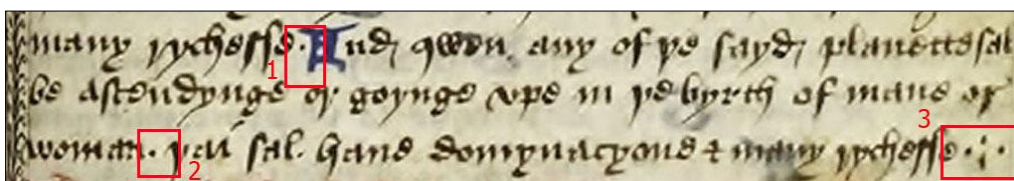 many rychesse · And qwen any of þe sayd planettes sal
1
be ascendynge or goynge vpe in þe byrth of mane or
3
woman · þai sal · haue domynacyone & many rychesse ·:·
2